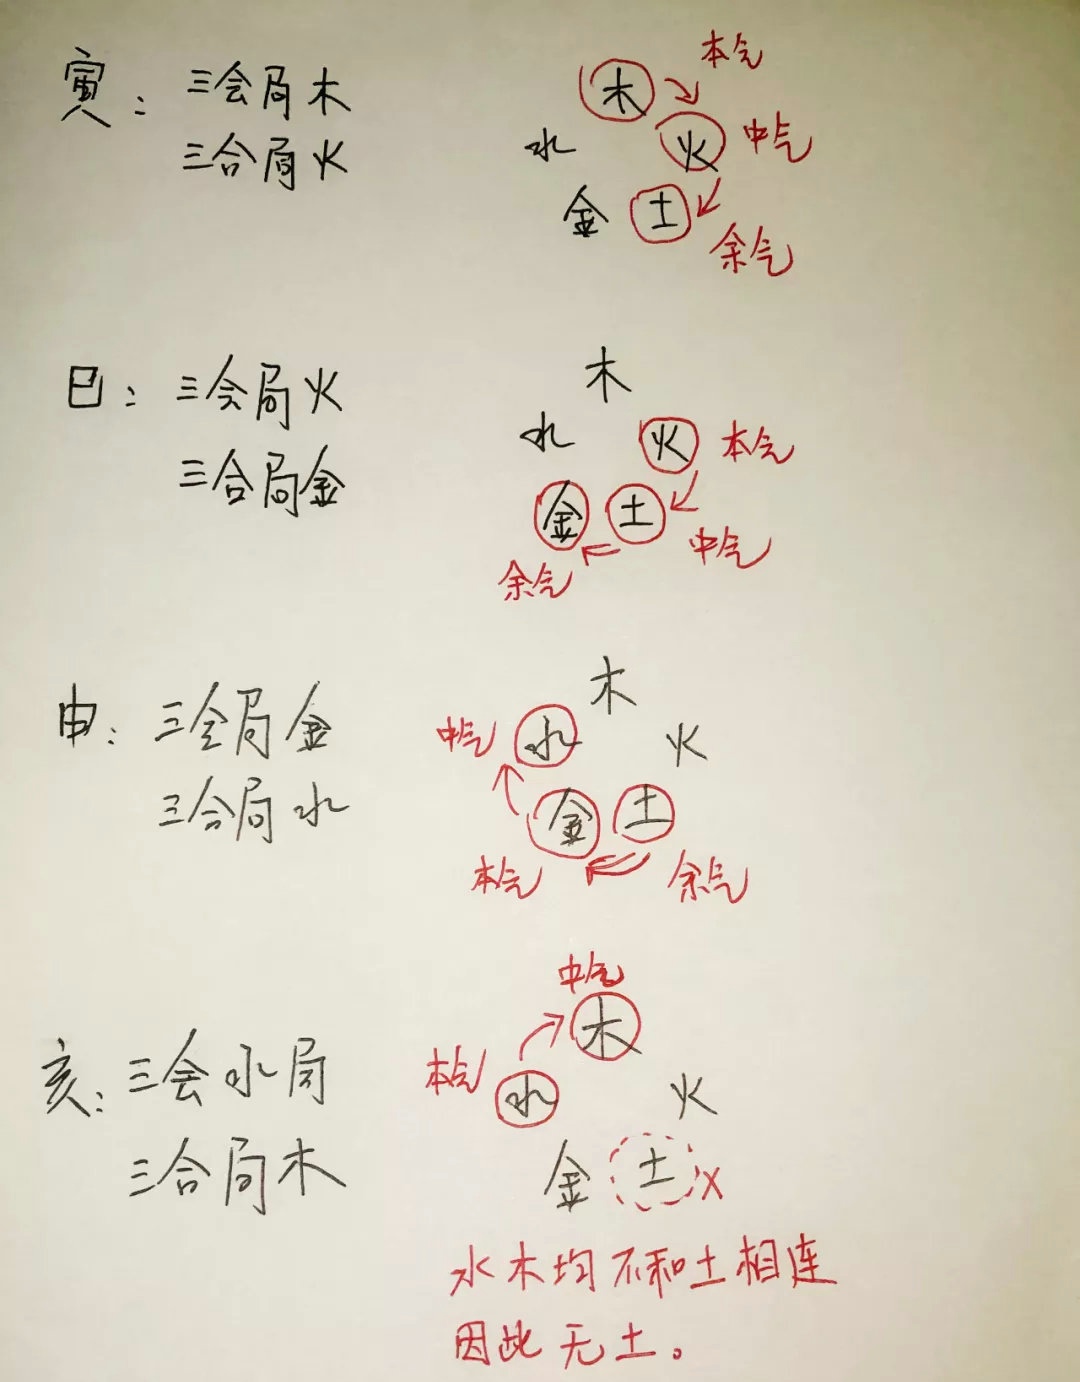 寅：三会局木
三合局火
本气
木
水
火
中气
金
土
余气
巳：三会局火
三合局金
木
水
火
本气
金
土
中气
余气
申：三会局金
三合局水
木
中气
水
火
金
土
本气
余气
亥：三会水局
三合局木
中气
木
本气
水
火
金
土
X
水木均不和土相连
因此无土。